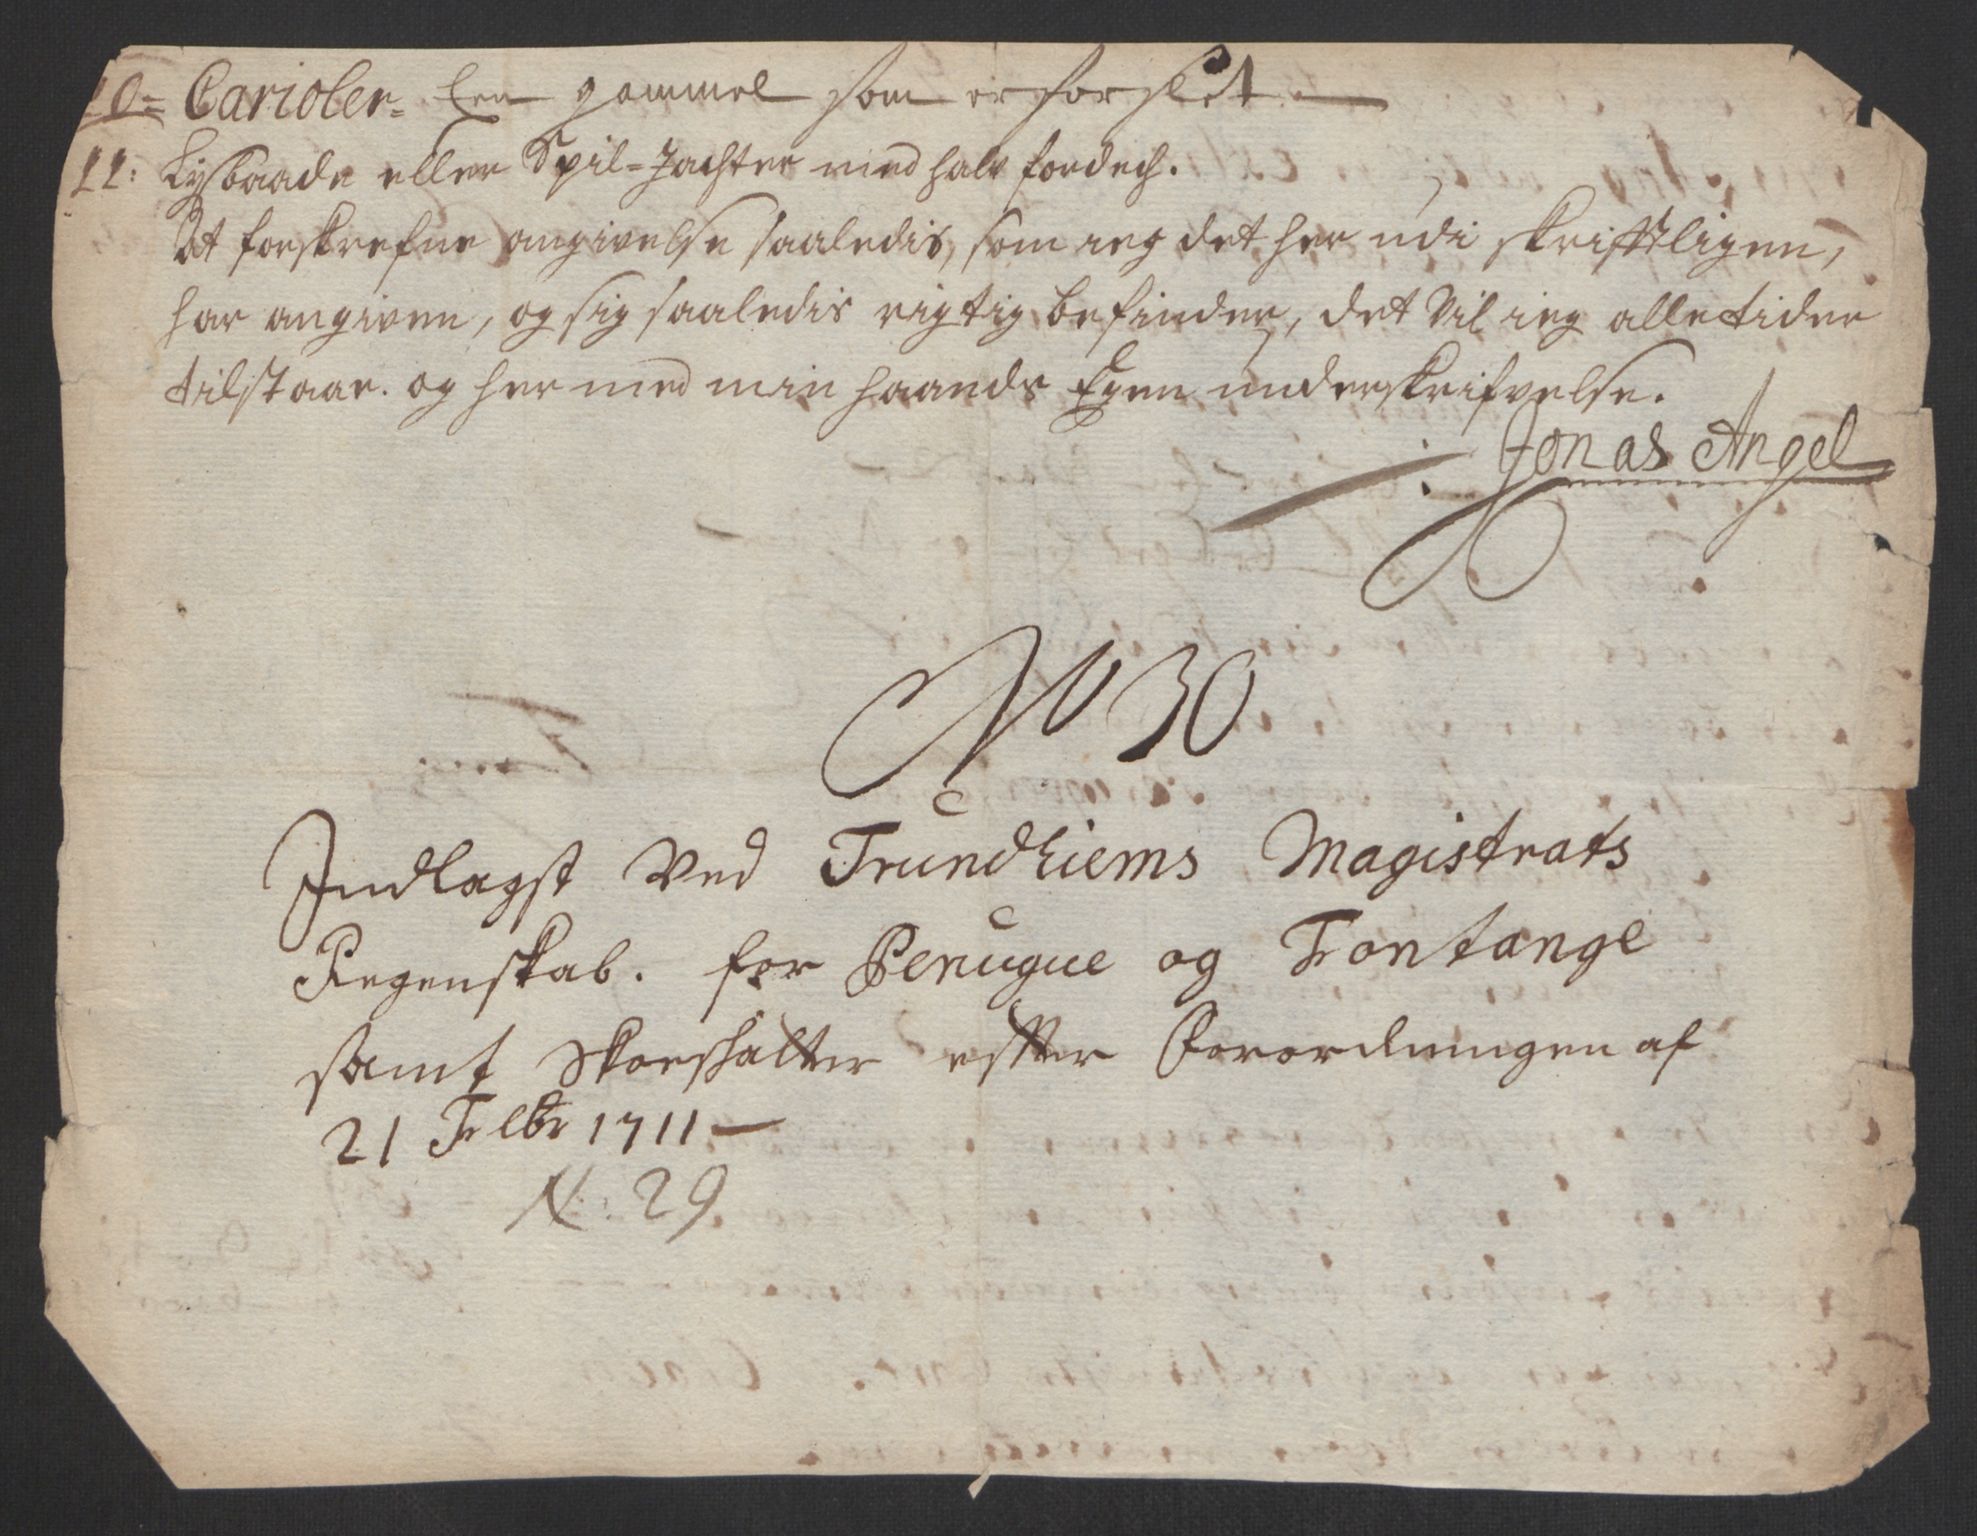 10= Carioler= Een gammel som er forslet
11: Lysbaade eller Spil=Jachter med halv fordech.
At forskrefne angivelse saaledis, som ieg det her udi skrifftligen,
har angiven, og sig saaledis rigtig befinder, det Vil ieg alle tider
tilstaar. og her med min haands Egen underskrifvelse.
Jonas Angel
No 30
Indlagst Ved Trundhiems Magistrats
Regenskab. for Perugue og Fontange
samt Skoeshalter effter Forordningen af
21 Febr 1711
N: 29